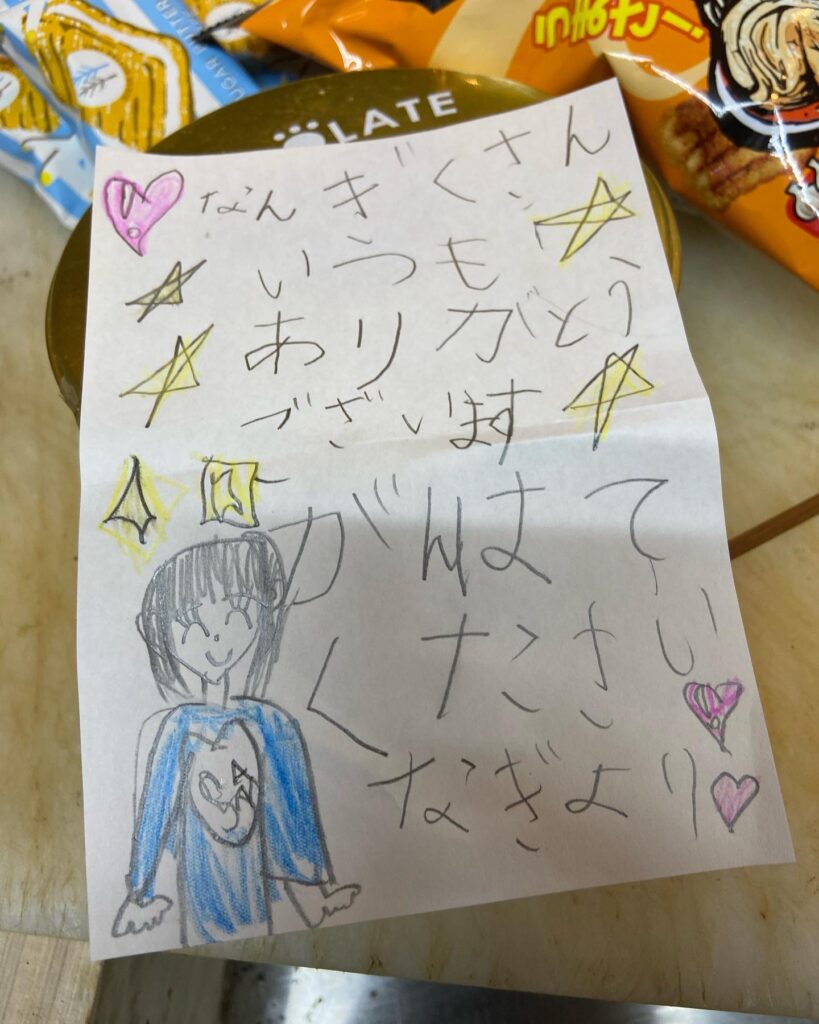 LATE
なんぎくさん
いつも
ありがとう
ございます
がんはて
くたさい
なぎより